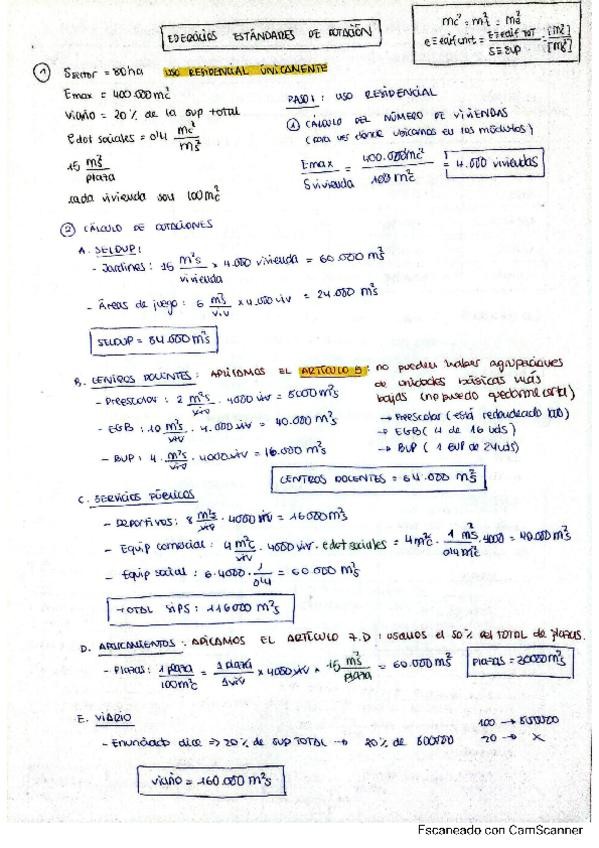 EJERCICIOS ESTÁNDARES DE DOTACIÓN
mc² = m²t = m²c
e ≡ edif unit = E ≡ edif TOT / S ≡ SUP = [m²c] / [m²s]
① Sector = 80ha USO RESIDENCIAL ÚNICAMENTE
Emax = 400.000 m²c
Viario = 20% de la sup total
Edot sociales = 0'4 mc² / m²s
15 m²s / plaza
cada vivienda son 100 m²c
PASO 1: USO RESIDENCIAL
① CÁLCULO DEL NÚMERO DE VIVIENDAS
(para ver dónde ubicamos en los módulos)
Emax / S vivienda = 400.000 mc² / 100 mc² = 4.000 viviendas
② CÁLCULO DE DOTACIONES
A. SELDUP:
- Jardines: 15 m²s / vivienda × 4.000 vivienda = 60.000 m²s
- Áreas de juego: 6 m²s / viv × 4.000 viv = 24.000 m²s
SELDUP = 84.000 m²s
B. CENTROS DOCENTES: APLICAMOS EL ARTÍCULO 5: no pueden haber agrupaciones
de unidades básicas más
bajas (no puedo quedarme corta)
- Preescolar: 2 m²s / viv · 4000 viv = 8000 m²s
→ Preescolar (está redondeado
- EGB: 10 m²s / viv · 4.000 viv = 40.000 m²s
→ EGB (4 de 16 uds)
- BUP: 4 m²s / viv · 4000 viv = 16.000 m²s
→ BUP (1 BUP de 24 uds)
CENTROS DOCENTES = 64.000 m²s
C. SERVICIOS PÚBLICOS
- Deportivos: 8 m²s / viv · 4000 viv = 16000 m²s
- Equip comercial: 4 m²c / viv · 4000 viv · edot sociales = 4 m²c · 1 m²s / 0'4 m²c · 4000 = 40.000 m²s
- Equip social: 6 · 4000 · 1 / 0'4 = 60.000 m²s
TOTAL SIPS: 116000 m²s
D. APARCAMIENTOS: APLICAMOS EL ARTÍCULO 7.D: usamos el 50% del TOTAL de plazas.
- Plazas: 1 plaza / 100 m²c = 1 plaza / 1 viv × 4000 viv × 15 m²s / plaza = 60.000 m²s
Plazas = 30000 m²s
E. VIARIO
- Enunciado dice ⇒ 20% de SUP TOTAL → 20% de 800000
100 → 800000
20 → x
VIARIO = 160.000 m²s
Escaneado con CamScanner